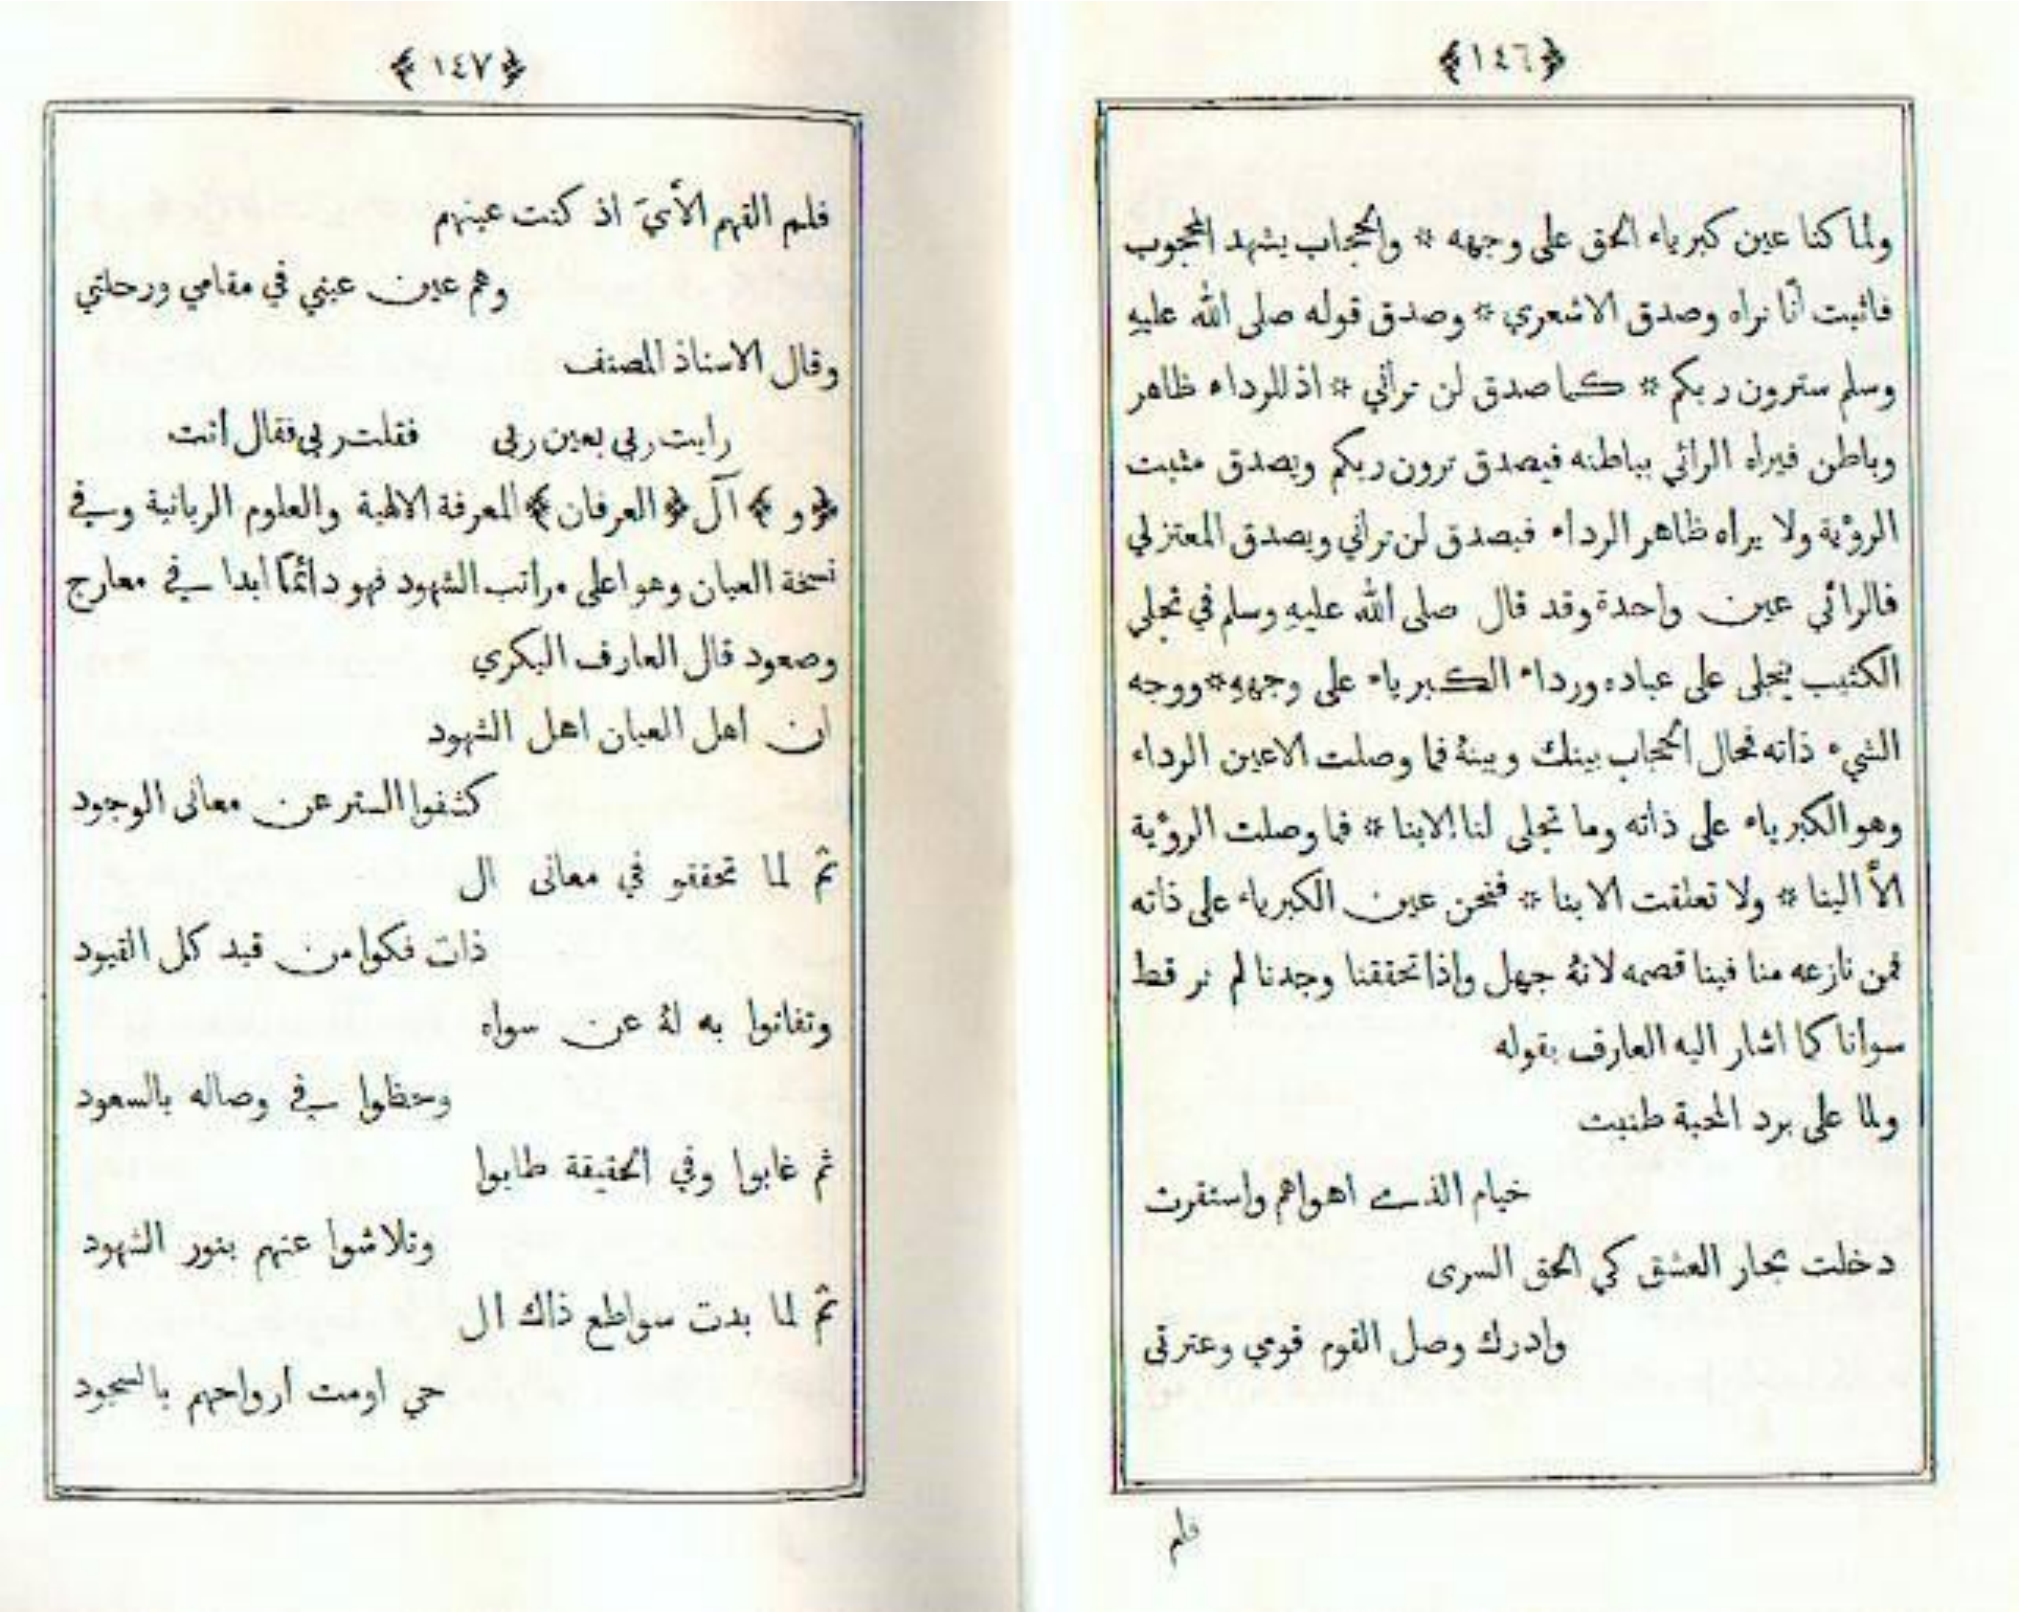 ﴿١٤٦﴾
ولما كنا عين كبرياء الحق على وجهه * والحجاب يشهد المحجوب
فاثبت أنّا نراه وصدق الاشعري * وصدق قوله صلى الله عليهِ
وسلم سترون ربكم * كما صدق لن تراني * اذ للرداء ظاهر
وباطن فيراه الرائي بباطنه فيصدق ترون ربكم ويصدق مثبت
الرؤية ولا يراه ظاهر الرداء فيصدق لن تراني ويصدق المعتزلي
فالرائي عين واحدة وقد قال صلى الله عليهِ وسلم في تجلي
الكثيب يتجلى على عباده ورداء الكبرياء على وجههِ * ووجه
الشيء ذاته فحال الحجاب بينك وبينهُ فما وصلت الاعين الرداء
وهو الكبرياء على ذاته وما تجلى لنا الابنا * فما وصلت الرؤية
الاَّ الينا * ولا تعلقت الا بنا * فنحن عين الكبرياء على ذاته
فمن نازعه منا فينا قصمه لانهُ جهل واذا تحققنا وجدنا لم نر قط
سوانا كما اشار اليه العارف بقوله
ولما على برد المحبة طنبت
خيام الذي اهواهم واستقرت
دخلت بحار العشق كي الحق السرى
وادرك وصل القوم قومي وعترتى
فلم
﴿١٤٧﴾
فلم القهم الاَّيَ اذ كنت عينهم
وهم عين عيني في مقامي ورحلتي
وقال الاستاذ المصنف
رايت ربي بعين ربى فقلت ربي فقال انت
﴿و﴾ آل ﴿العرفان﴾ المعرفة الالهية والعلوم الربانية وفي
نسخة العيان وهو اعلى مراتب الشهود فهو دائمًا ابدا في معارج
وصعود قال العارف البكري
ان اهل العيان اهل الشهود
كشفوا الستر عن معانى الوجود
ثم لما تحققو في معانى ال
ذات فكوا من قيد كل القيود
وتفانوا به لهُ عن سواه
وحظوا في وصاله بالسعود
ثم غابوا وفي الحقيقة طابوا
وتلاشوا عنهم بنور الشهود
ثم لما بدت سواطع ذاك ال
حي اومت أرواحهم بالسجود